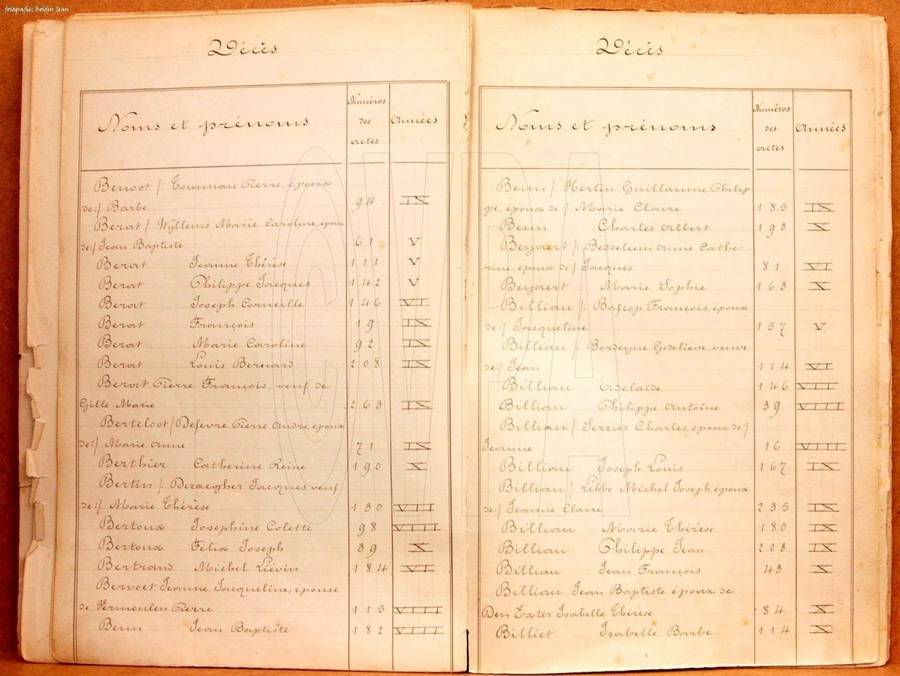 fotografies Beldyn Jean
Décès
Noms et prénoms
Numéros des actes
Années
Benoot /: Tournau Pierre, époux
de:/ Barbe 94 IX
Berat /: Wyllems Marie Caroline, épouse
de:/ Jean Baptiste 61 V
Berat Jeanne Thérèse 111 V
Berat Philippe Jacques 142 V
Berat Joseph Corneille 146 VI
Berat François 19 IX
Berat Marie Caroline 92 IX
Berat Louis Bernard 208 IX
Berat Pierre François, veuf de
Gille Marie 263 IX
Berteloot /: Defevre Pierre André, époux
de:/ Marie Anne 71 IX
Berthier Catherine Reine 190 X
Bertin /: Dezaegher Jacques, veuf
de:/ Marie Thérèse 130 VII
Bertoux Josephine Colette 98 VIII
Bertoux Félix Joseph 39 X
Bertrand Michel Liévin 184 VI
Bervoet Jeanne Jacqueline, épouse
de Vermeulen Pierre 113 VIII
Beun Jean Baptiste 182 VIII
Décès
Noms et prénoms
Numéros des actes
Années
Beun /: Hertin Guillaume, Philip
pe, époux de:/ Marie Claire 185 IX
Beun Charles Albert 193 X
Beyaert /: Besseleun Anne Cathe
rine, époux de:/ Jacques 81 VI
Beyaert Marie Sophie 163 X
Billiau /: Bascop François, époux
de:/ Jacqueline 157 V
Billiau /: Bordeyne Godelieve, veuve
de:/ Jean 114 VI
Billiau Adelaïde 146 VII
Billiau Philippe Antoine 39 VIII
Billiau /: Terrier Charles, époux de:/
Jeanne 16 VIII
Billiau Joseph Louis 167 IX
Billiau /: Libbe Michel Joseph époux
de:/ Jeanne Claire 235 IX
Billiau Marie Thérèse 180 IX
Billiau Philippe Jean 203 IX
Billiau Jean François 43 X
Billiau Jean Baptiste époux de
Den Exter Isabelle Thérèse 84 X
Billiet Isabelle Barbe 114 X